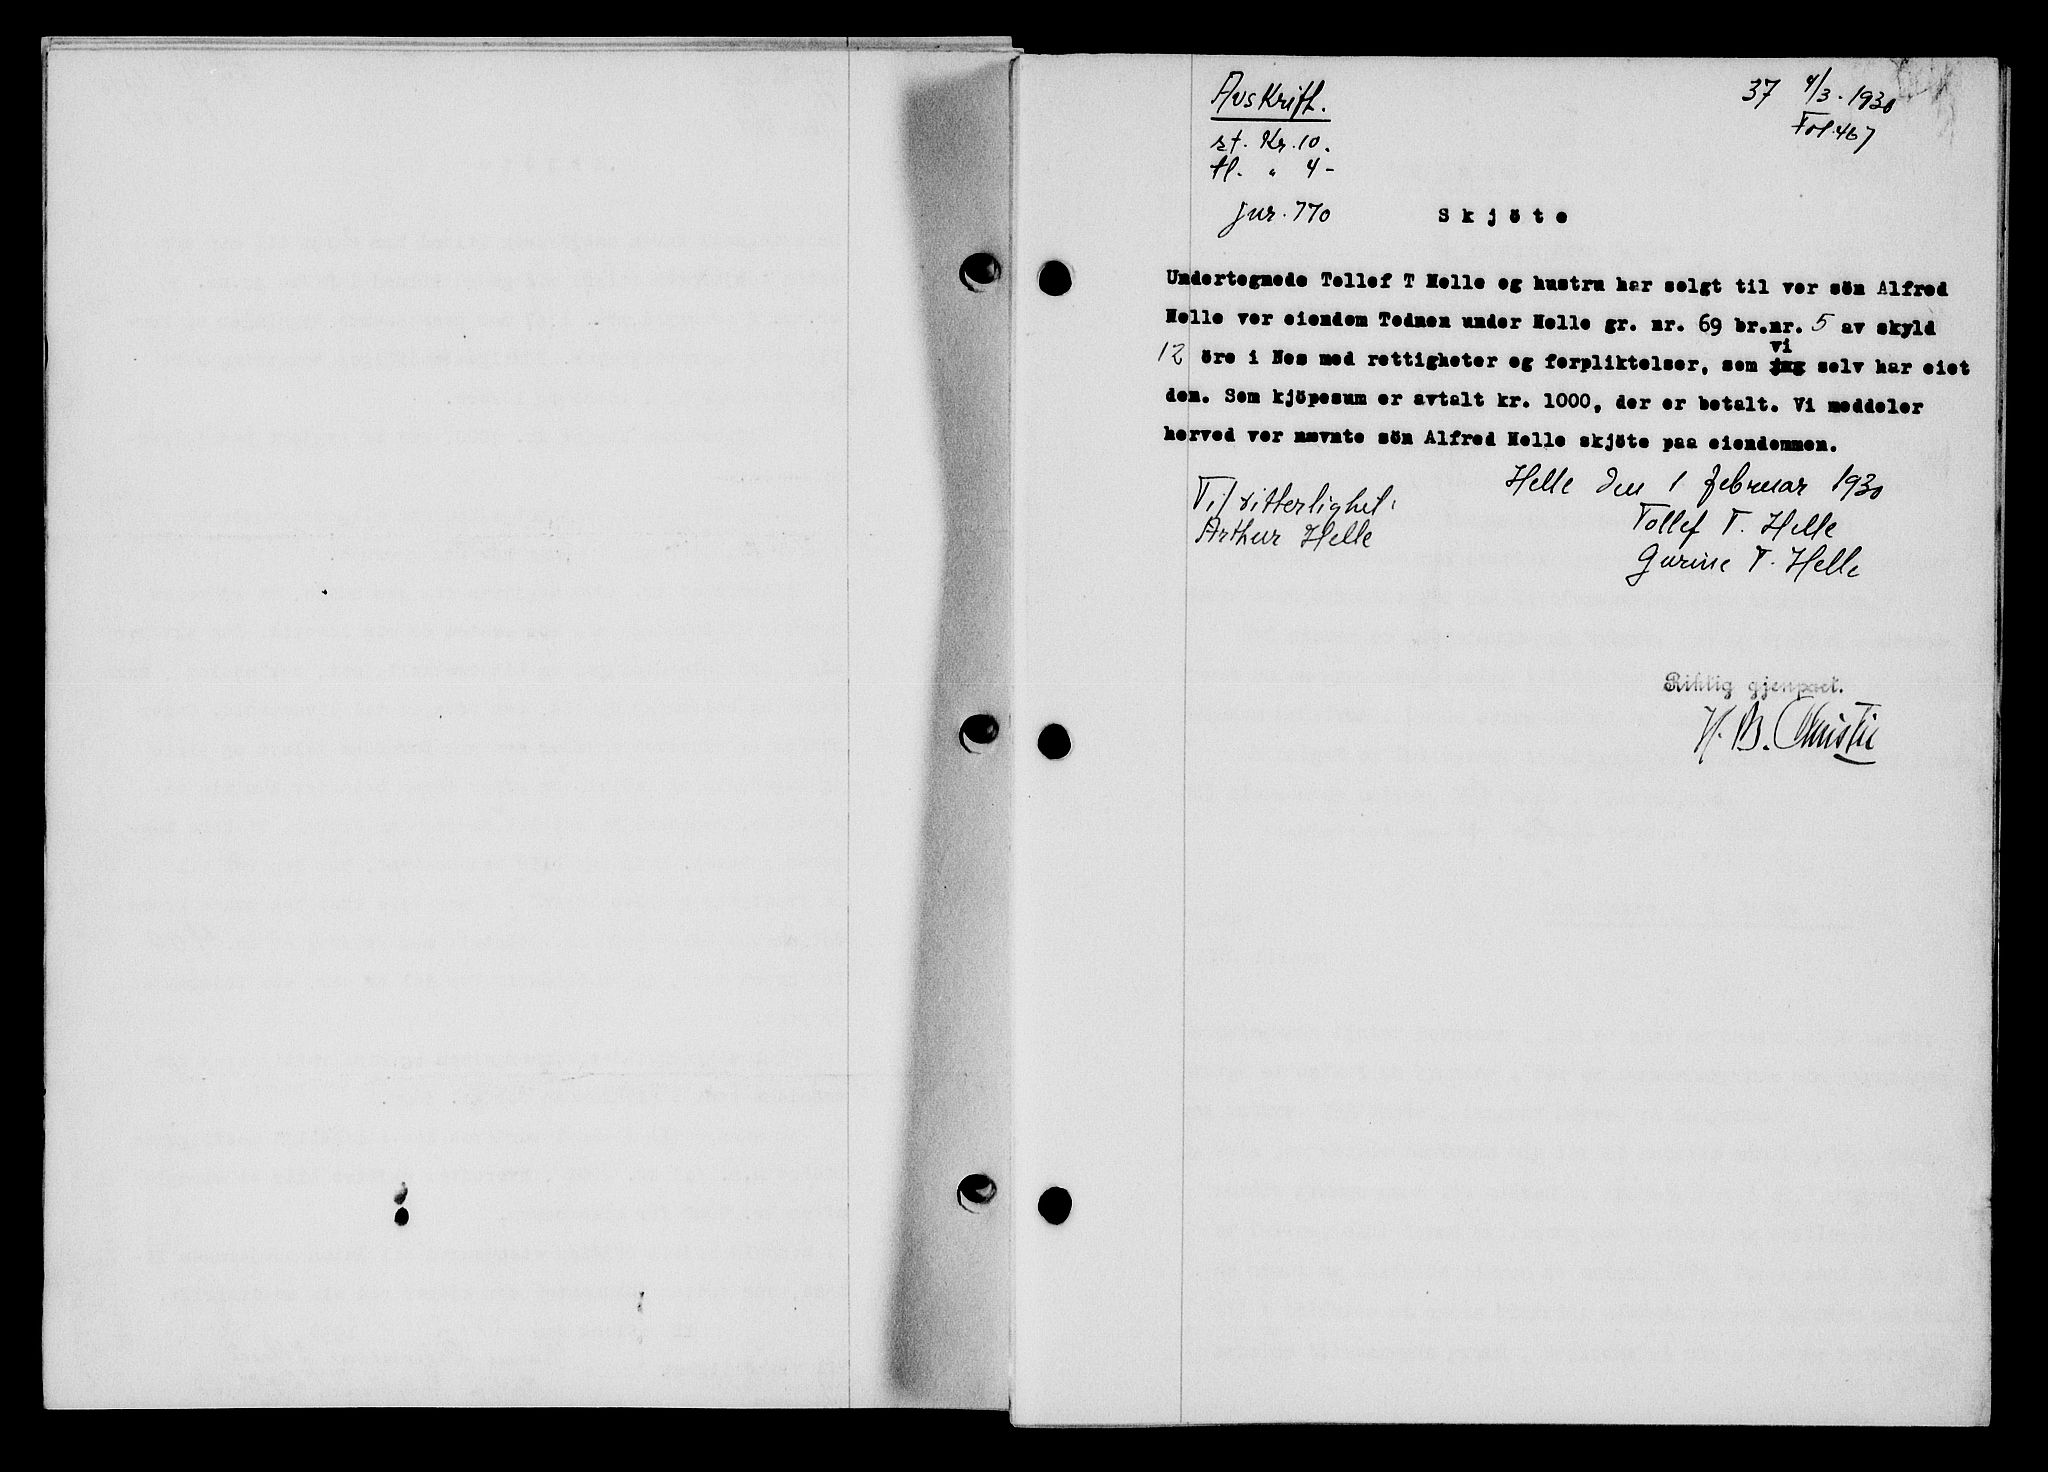 Avskrift.
37 4/3 - 1930
Fol. 467
st. Kr. 10.
tl. " 4 -
jnr. 770
Skjöte
Undertegnede Tellef T Helle og hustru har solgt til vor sön Alfred
Helle vor eiendom Tednen under Helle gr. nr. 69 br.nr. 5 av skyld
12 öre i Nes med rettigheter og forpliktelser, som vi selv har eiet
den. Som kjöpesum er avtalt kr. 1000, der er betalt. Vi meddeler
herved vor nævnte sön Alfred Helle skjöte paa eiendommen.
Helle den 1 februar 1930
Til vitterlighet:
Tollef T. Helle
Arthur Helle
Gurine T. Helle
Riktig gjenpart.
H. B. Christie